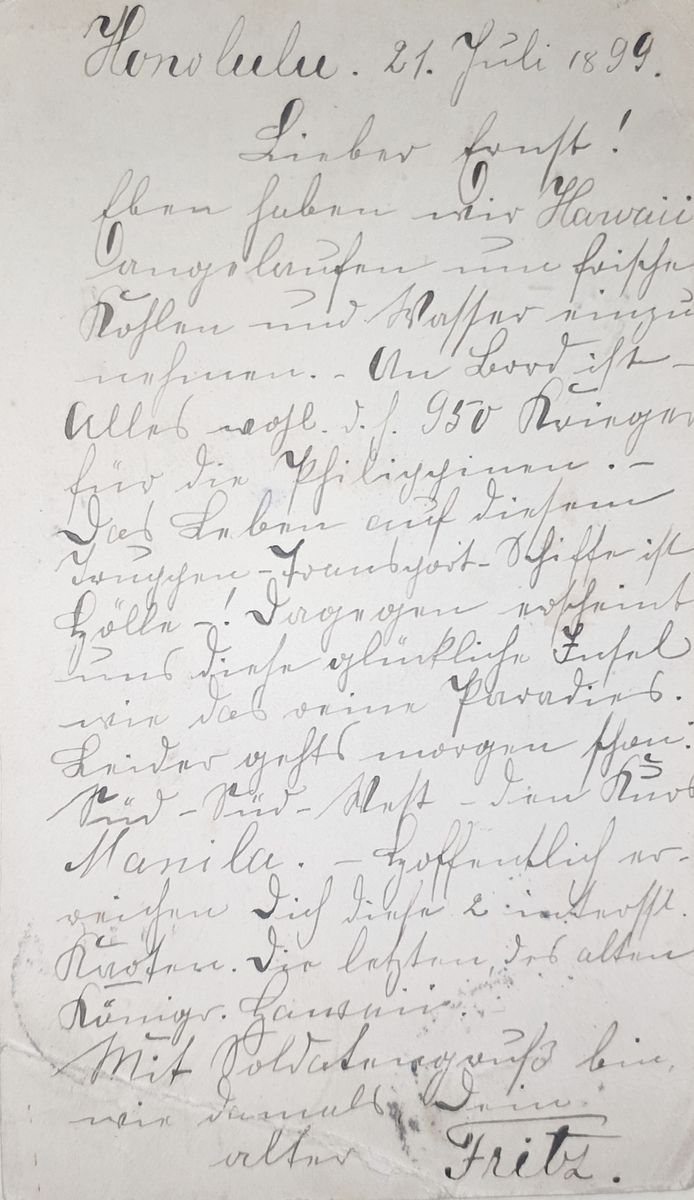 Honolulu. 21. Juli 1899.
Lieber Ernst!
Eben haben wir Hawaii
angelaufen um frische
Kohlen und Wasser einzu
nehmen. - An Bord ist -
Alles wohl. d. h. 950 Krieger
für die Philippinen. -
Das Leben auf diesem
Truppen-Transport-Schiffe ist
Hölle -! Dagegen erscheint
uns diese glückliche Insel
wie das reine Paradies.
Leider gehts morgen schon:
Süd-Süd-West - den Kurs
Manila. - Hoffentlich er-
reichen Dich diese 2 interesst.
Karten. Die letzten des alten
Königr. Hawaii.
Mit Soldatengruß bin,
wie damals, Dein
alter Fritz.